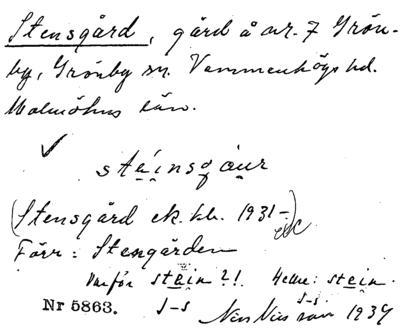 Stensgård, gård å nr. 7 Grön-
by, Grönby sn. Vemmenhögs hd.
Malmöhus län.
✓
steinsgaur
(Stensgård ek. kb. 1931-)
Förr: Stengården
Varför stein ?! Hellre: stein.
Nr 5863. J-s J-s
Nils Nilsson 1934